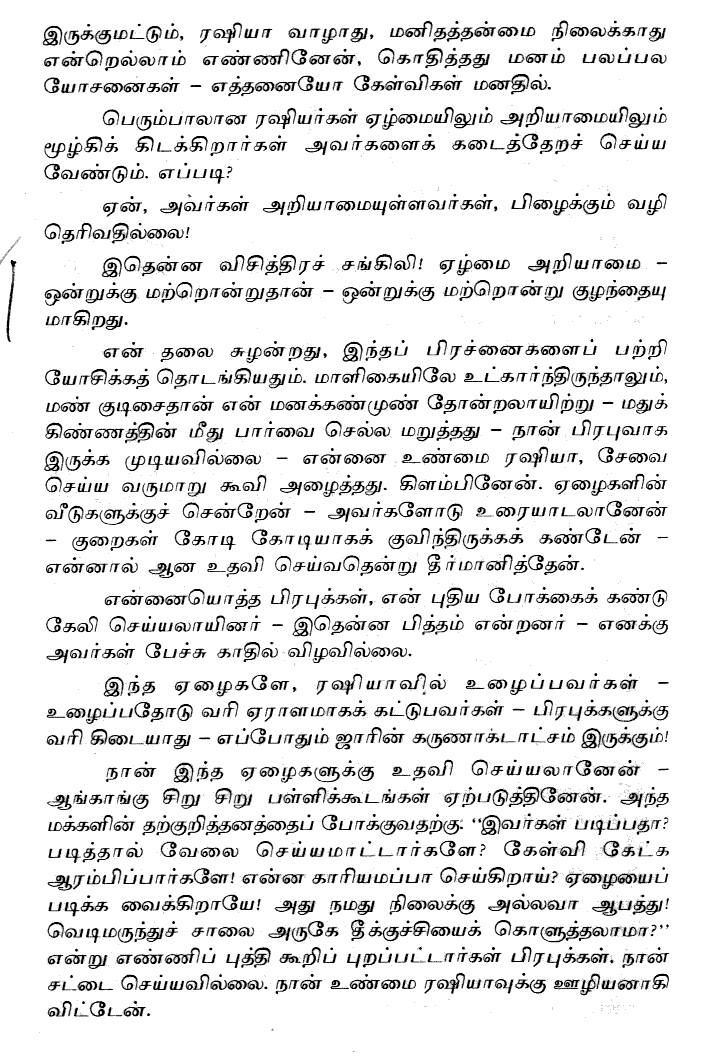 இருக்குமட்டும், ரஷியா வாழாது, மனிதத்தன்மை நிலைக்காது
என்றெல்லாம் எண்ணினேன், கொதித்தது மனம் பலப்பல
யோசனைகள் – எத்தனையோ கேள்விகள் மனதில்.
பெரும்பாலான ரஷியர்கள் ஏழ்மையிலும் அறியாமையிலும்
மூழ்கிக் கிடக்கிறார்கள் அவர்களைக் கடைத்தேறச் செய்ய
வேண்டும். எப்படி?
ஏன், அவர்கள் அறியாமையுள்ளவர்கள், பிழைக்கும் வழி
தெரிவதில்லை!
இதென்ன விசித்திரச் சங்கிலி! ஏழ்மை அறியாமை –
ஒன்றுக்கு மற்றொன்றுதான் – ஒன்றுக்கு மற்றொன்று குழந்தையு
மாகிறது.
என் தலை சுழன்றது, இந்தப் பிரச்னைகளைப் பற்றி
யோசிக்கத் தொடங்கியதும். மாளிகையிலே உட்கார்ந்திருந்தாலும்,
மண் குடிசைதான் என் மனக்கண்முண் தோன்றலாயிற்று – மதுக்
கிண்ணத்தின் மீது பார்வை செல்ல மறுத்தது – நான் பிரபுவாக
இருக்க முடியவில்லை – என்னை உண்மை ரஷியா, சேவை
செய்ய வருமாறு கூவி அழைத்தது. கிளம்பினேன். ஏழைகளின்
வீடுகளுக்குச் சென்றேன் – அவர்களோடு உரையாடலானேன்
– குறைகள் கோடி கோடியாகக் குவிந்திருக்கக் கண்டேன் –
என்னால் ஆன உதவி செய்வதென்று தீர்மானித்தேன்.
என்னையொத்த பிரபுக்கள், என் புதிய போக்கைக் கண்டு
கேலி செய்யலாயினர் – இதென்ன பித்தம் என்றனர் – எனக்கு
அவர்கள் பேச்சு காதில் விழவில்லை.
இந்த ஏழைகளே, ரஷியாவில் உழைப்பவர்கள் –
உழைப்பதோடு வரி ஏராளமாகக் கட்டுபவர்கள் – பிரபுக்களுக்கு
வரி கிடையாது – எப்போதும் ஜாரின் கருணாக்டாட்சம் இருக்கும்!
நான் இந்த ஏழைகளுக்கு உதவி செய்யலானேன் –
ஆங்காங்கு சிறு சிறு பள்ளிக்கூடங்கள் ஏற்படுத்தினேன். அந்த
மக்களின் தற்குறித்தனத்தைப் போக்குவதற்கு: “இவர்கள் படிப்பதா?
படித்தால் வேலை செய்யமாட்டார்களே? கேள்வி கேட்க
ஆரம்பிப்பார்களே! என்ன காரியமப்பா செய்கிறாய்? ஏழையைப்
படிக்க வைக்கிறாயே! அது நமது நிலைக்கு அல்லவா ஆபத்து!
வெடிமருந்துச் சாலை அருகே தீக்குச்சியைக் கொளுத்தலாமா?”
என்று எண்ணிப் புத்தி கூறிப் புறப்பட்டார்கள் பிரபுக்கள். நான்
சட்டை செய்யவில்லை. நான் உண்மை ரஷியாவுக்கு ஊழியனாகி
விட்டேன்.